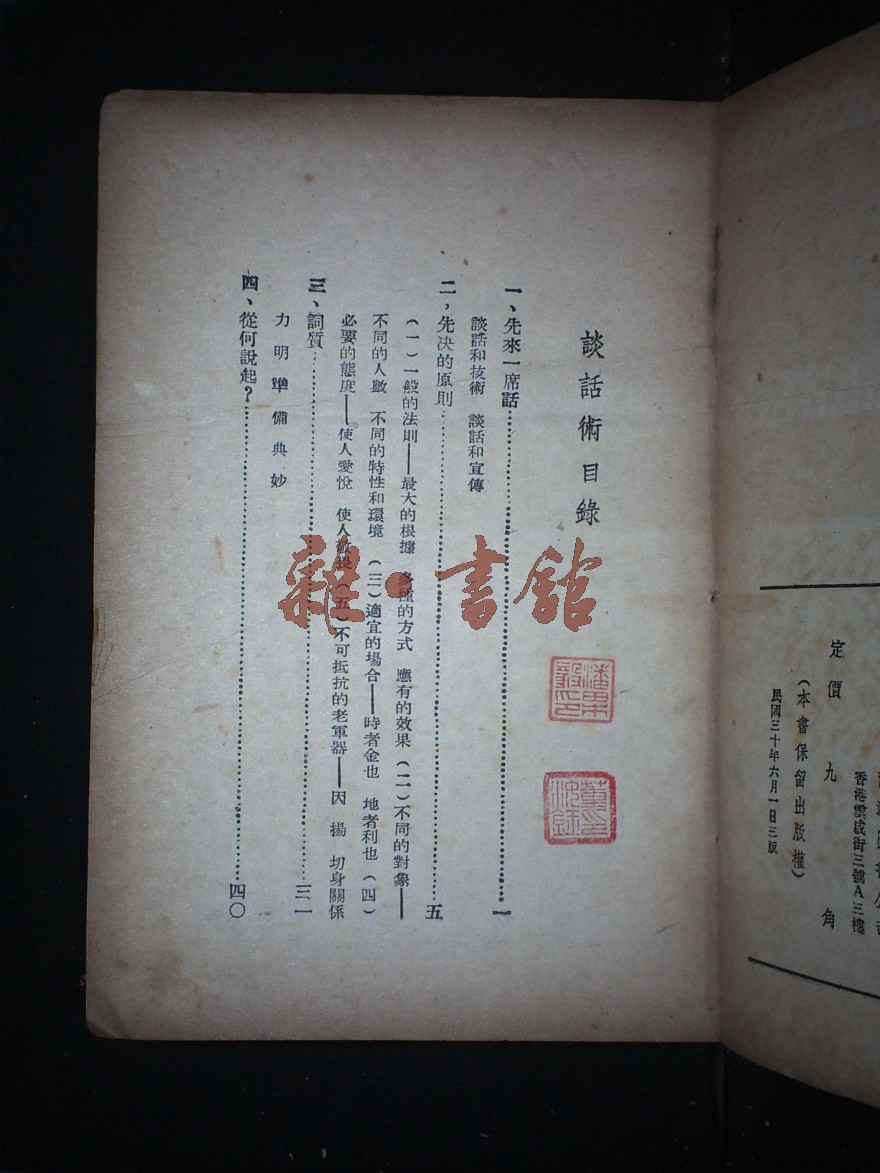 定價九角
(本書保留出版權)
香港雲咸街三號A三樓
民國三十年六月一日三版
談話術目錄
一、先來一席話……一
談話和技術 談話和宣傳
二,先决的原則……五
(一)一般的法則——最大的根據 多種的方式 應有的效果 (二)不同的對象——
不同的人數 不同的特性和環境 (三)適宜的場合——時者金也 地者利也 (四)
必要的態度——使人愛悅 使人敬畏 (五)不可抵抗的老軍器——因 揚 切身關係
三、詞質……三一
力 明 準 備 典 妙
四、從何說起?……四〇
雜·書館